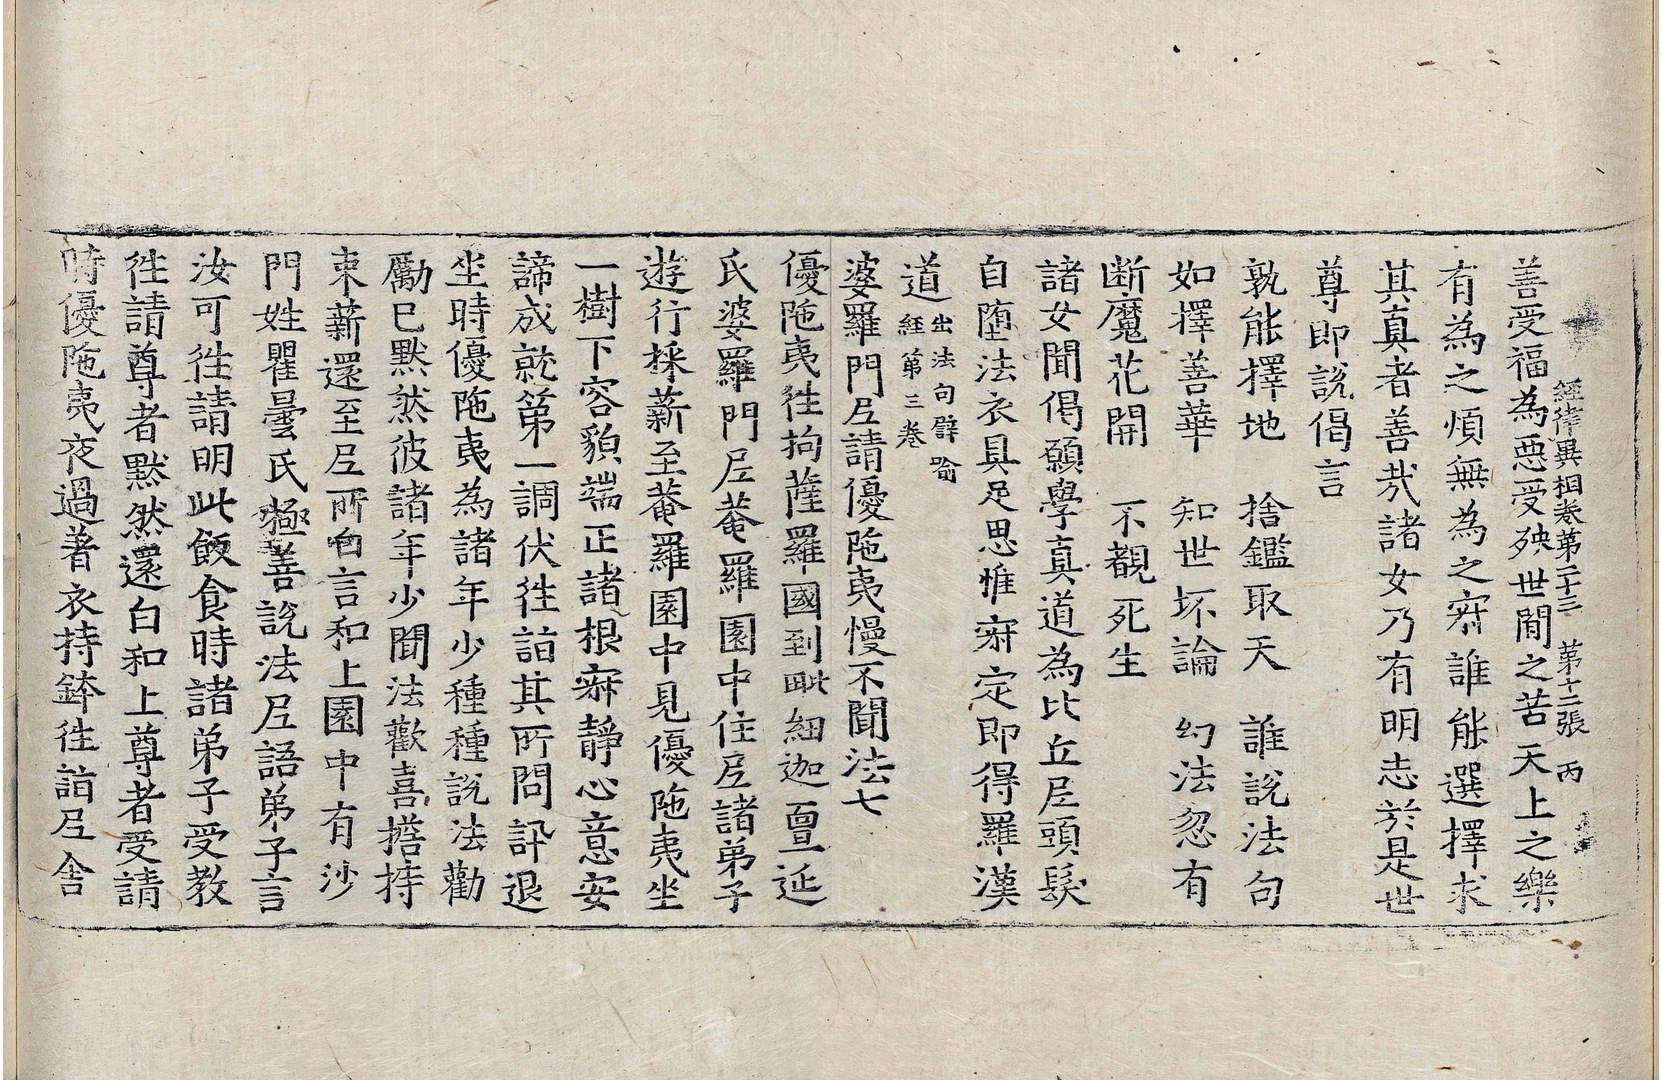 經律異相卷第二十三　第十二張　丙
善受福為惡受殃世間之苦天上之樂
有為之煩無為之寂誰能選擇求
其真者善哉諸女乃有明志於是世
尊即說偈言
孰能擇地　捨鑑取天　誰說法句
如擇善華　知世坏論　幻法忽有
断魔花開　不覩死生
諸女聞偈願學真道為比丘尼頭髮
自墮法衣具足思惟寂定即得羅漢
道出法句譬喻
經第三卷
婆羅門尼請優陁夷慢不聞法七
優陁夷徃拘薩羅國到毗紐迦亶延
氏婆羅門尼菴羅園中住尼諸弟子
遊行採薪至菴羅園中見優陁夷坐
一樹下容貌端正諸根寂靜心意安
諦成就第一調伏徃詣其所問訊退
坐時優陁夷為諸年少種種說法勸
勵已默然彼諸年少聞法歡喜擔持
束薪還至尼所白言和上園中有沙
門姓瞿曇氏極善說法尼語弟子言
汝可徃請明此飯食時諸弟子受教
徃請尊者默然還白和上尊者受請
時優陁夷夜過著衣持鉢徃詣尼舍